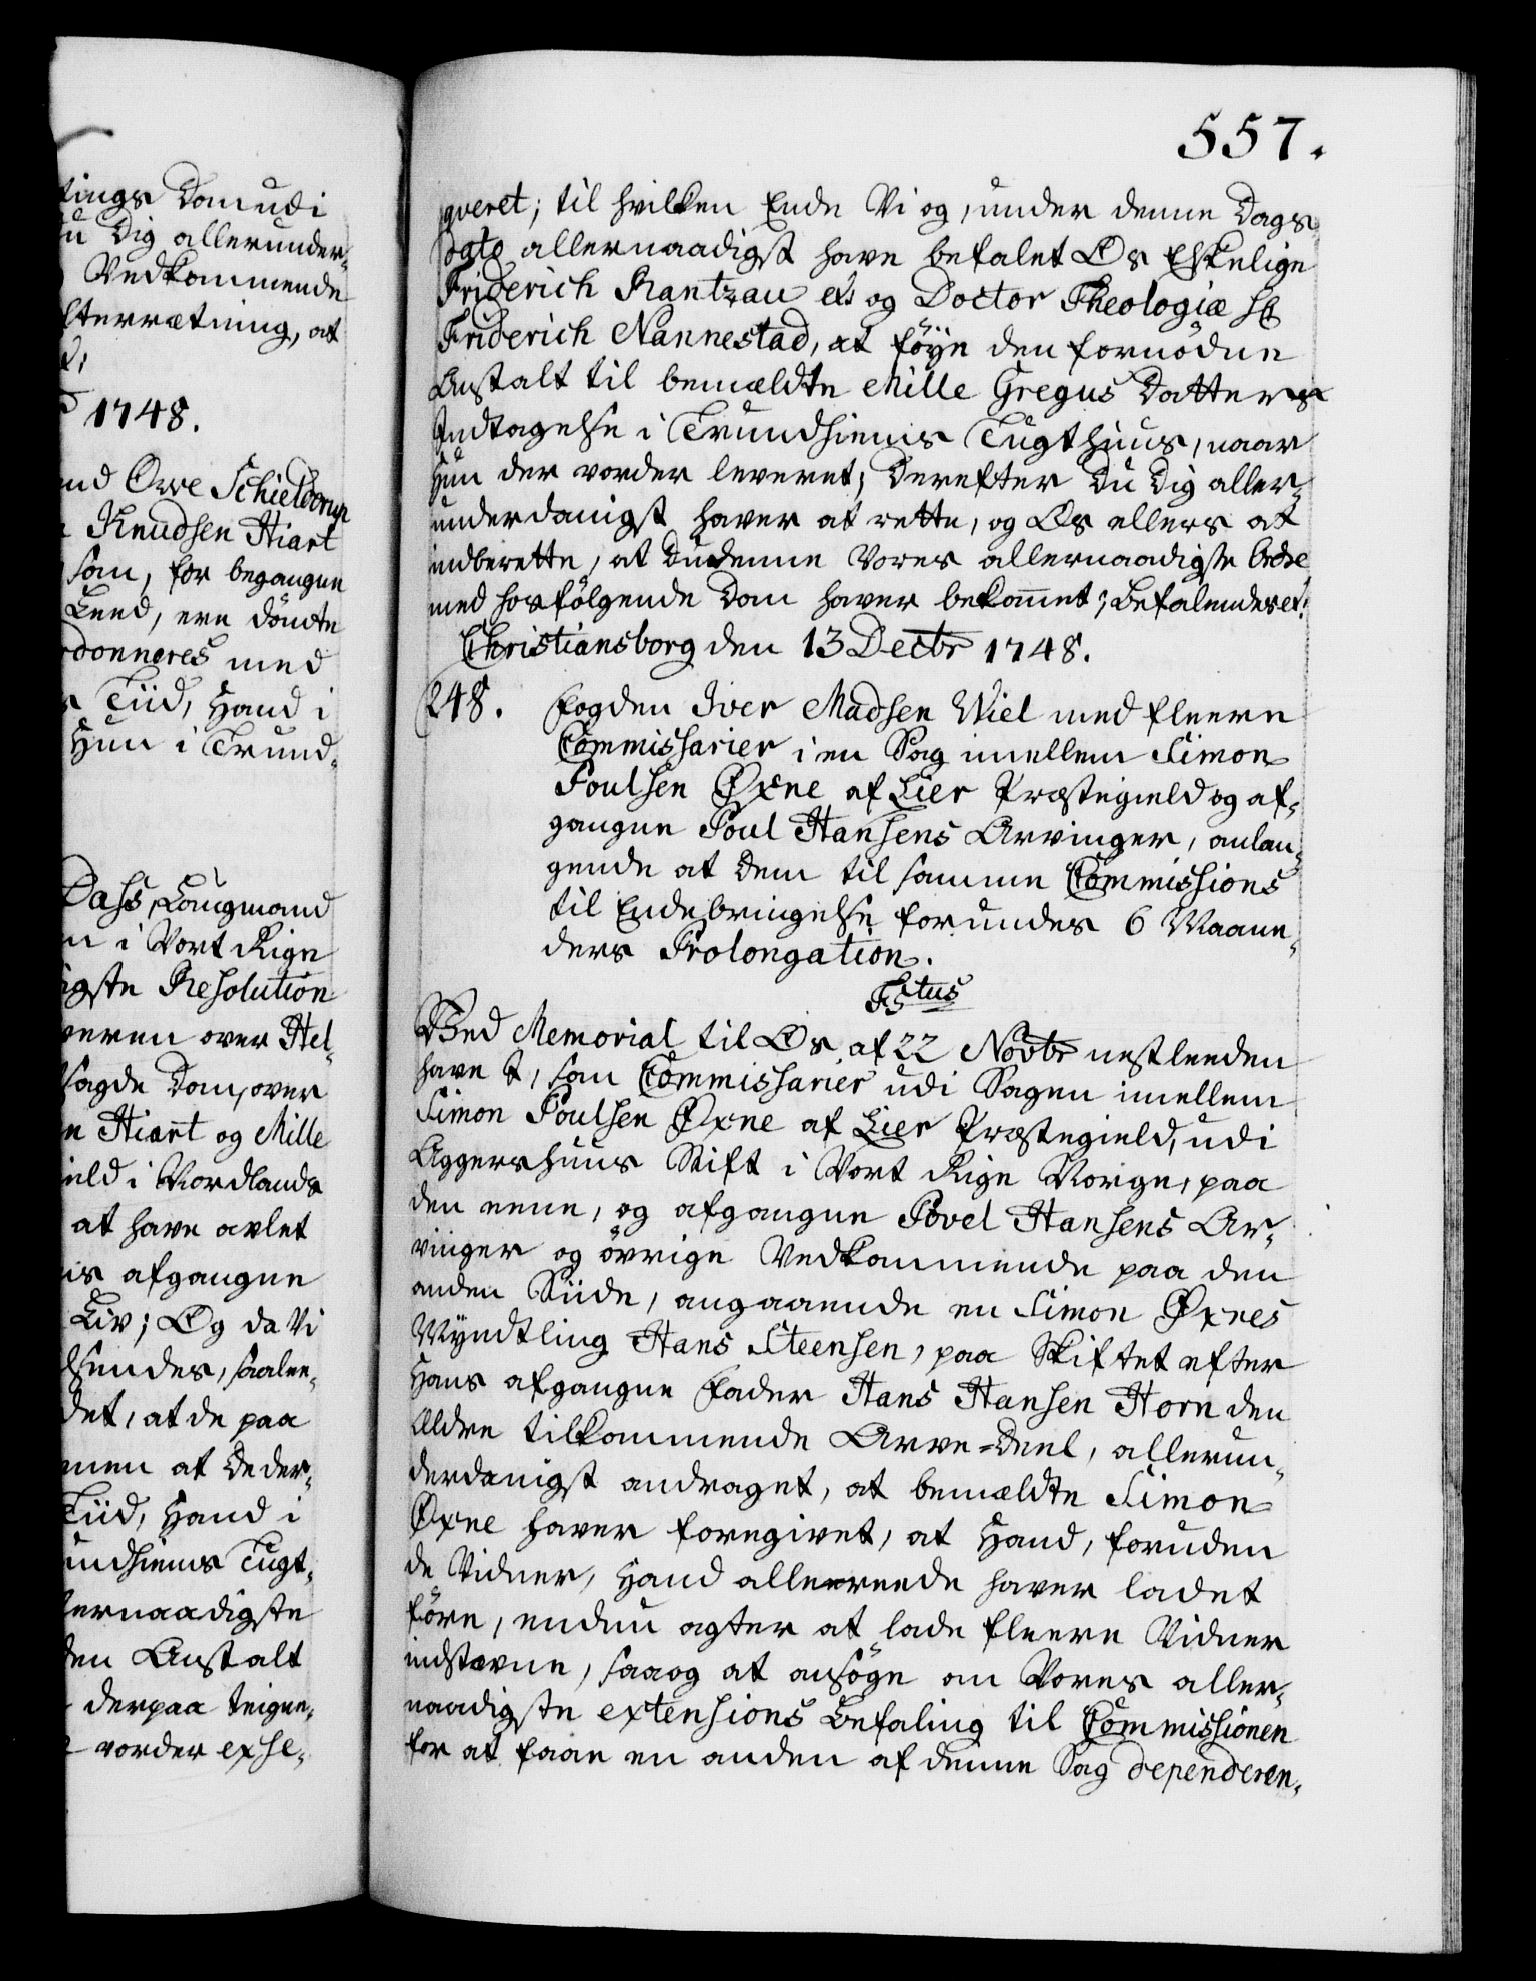 tings Dom udi
Du Dig allerunder-
Vedkommende
efterrætning, at
1748.
Ove Schielderup
Knudsen Hiart
som, for begangne
Leed, ere dömte
pardonneres med
Tiid, Hand i
Hun i Trund-
Dass, Laugmand
i Vort Rige
igste Resolution
veren over Hel-
sagde Dom, over
Hiart og Mille
ield i Nordlands
at have avlet
afgangne
Liv; Og da Vi
saalee-
det, at de paa
men at de der-
Tiid, Hand i
undhiems Tugt-
lernaadigste
den Anstalt
derpaa teigne-
vorder exse-
557.
qveret; til hvilken Ende Vi og, under denne Dags
dato allernaadigst have befalet Os Elskelige
Friderich Rantzau etc og Doctor Theologiæ Hr
Friderich Nannestad, at föÿe den fornödne
Anstalt til bemældte Mille Gregus Datters
Indtagelse i Trundhiems Tugthuus, naar
Hun der vorder leveret; Derefter Du Dig aller-
underdanigst haver at rette, og Os ellers at
indberette, at Du denne Vores allernaadigste Ordre
med hosfölgende Dom haver bekommet; Befalendes etc.
Christiansborg den 13 Decbr 1748.
248. Fogden Iver Madsen Wiel med fleere
Commissarier i en Sag imellem Simon
Poulsen Øxne af Lier Præstegield og af-
gangne Poul Hansens Arvinger, anlan-
gende at dem til samme Commissions
til Endebringelse forundes 6 Maane-
ders Prolongation.
F5tus
Ved Memorial til Os af 22 Novbr nestleeden
have I, som Commissarier udi Sagen imellem
Simon Poulsen Øxne af Lier Præstegield, udi
Aggershuus Stift i Vort Rige Norge, paa
den eene, og afgangne Povel Hansens Ar-
vinger og övrige Vedkommende paa den
anden Siide, angaaende en Simon Øxnes
Myndtling Hans Steensen, paa Skiftet efter
Hans afgangne Fader Hans Hansen Horn den
Ældre tilkommende Arve-Deel, allerun-
derdanigst andraget, at bemældte Simon
Øxne haver foregivet, at Hand, foruden
de Vidner, Hand allereede haver ladet
före, endnu agter at lade fleere Vidner
indstævne, saa og at ansöge om Vores aller-
naadigste extensions Befaling til Commissionen
for at faae en anden af denne Sag dependeren-